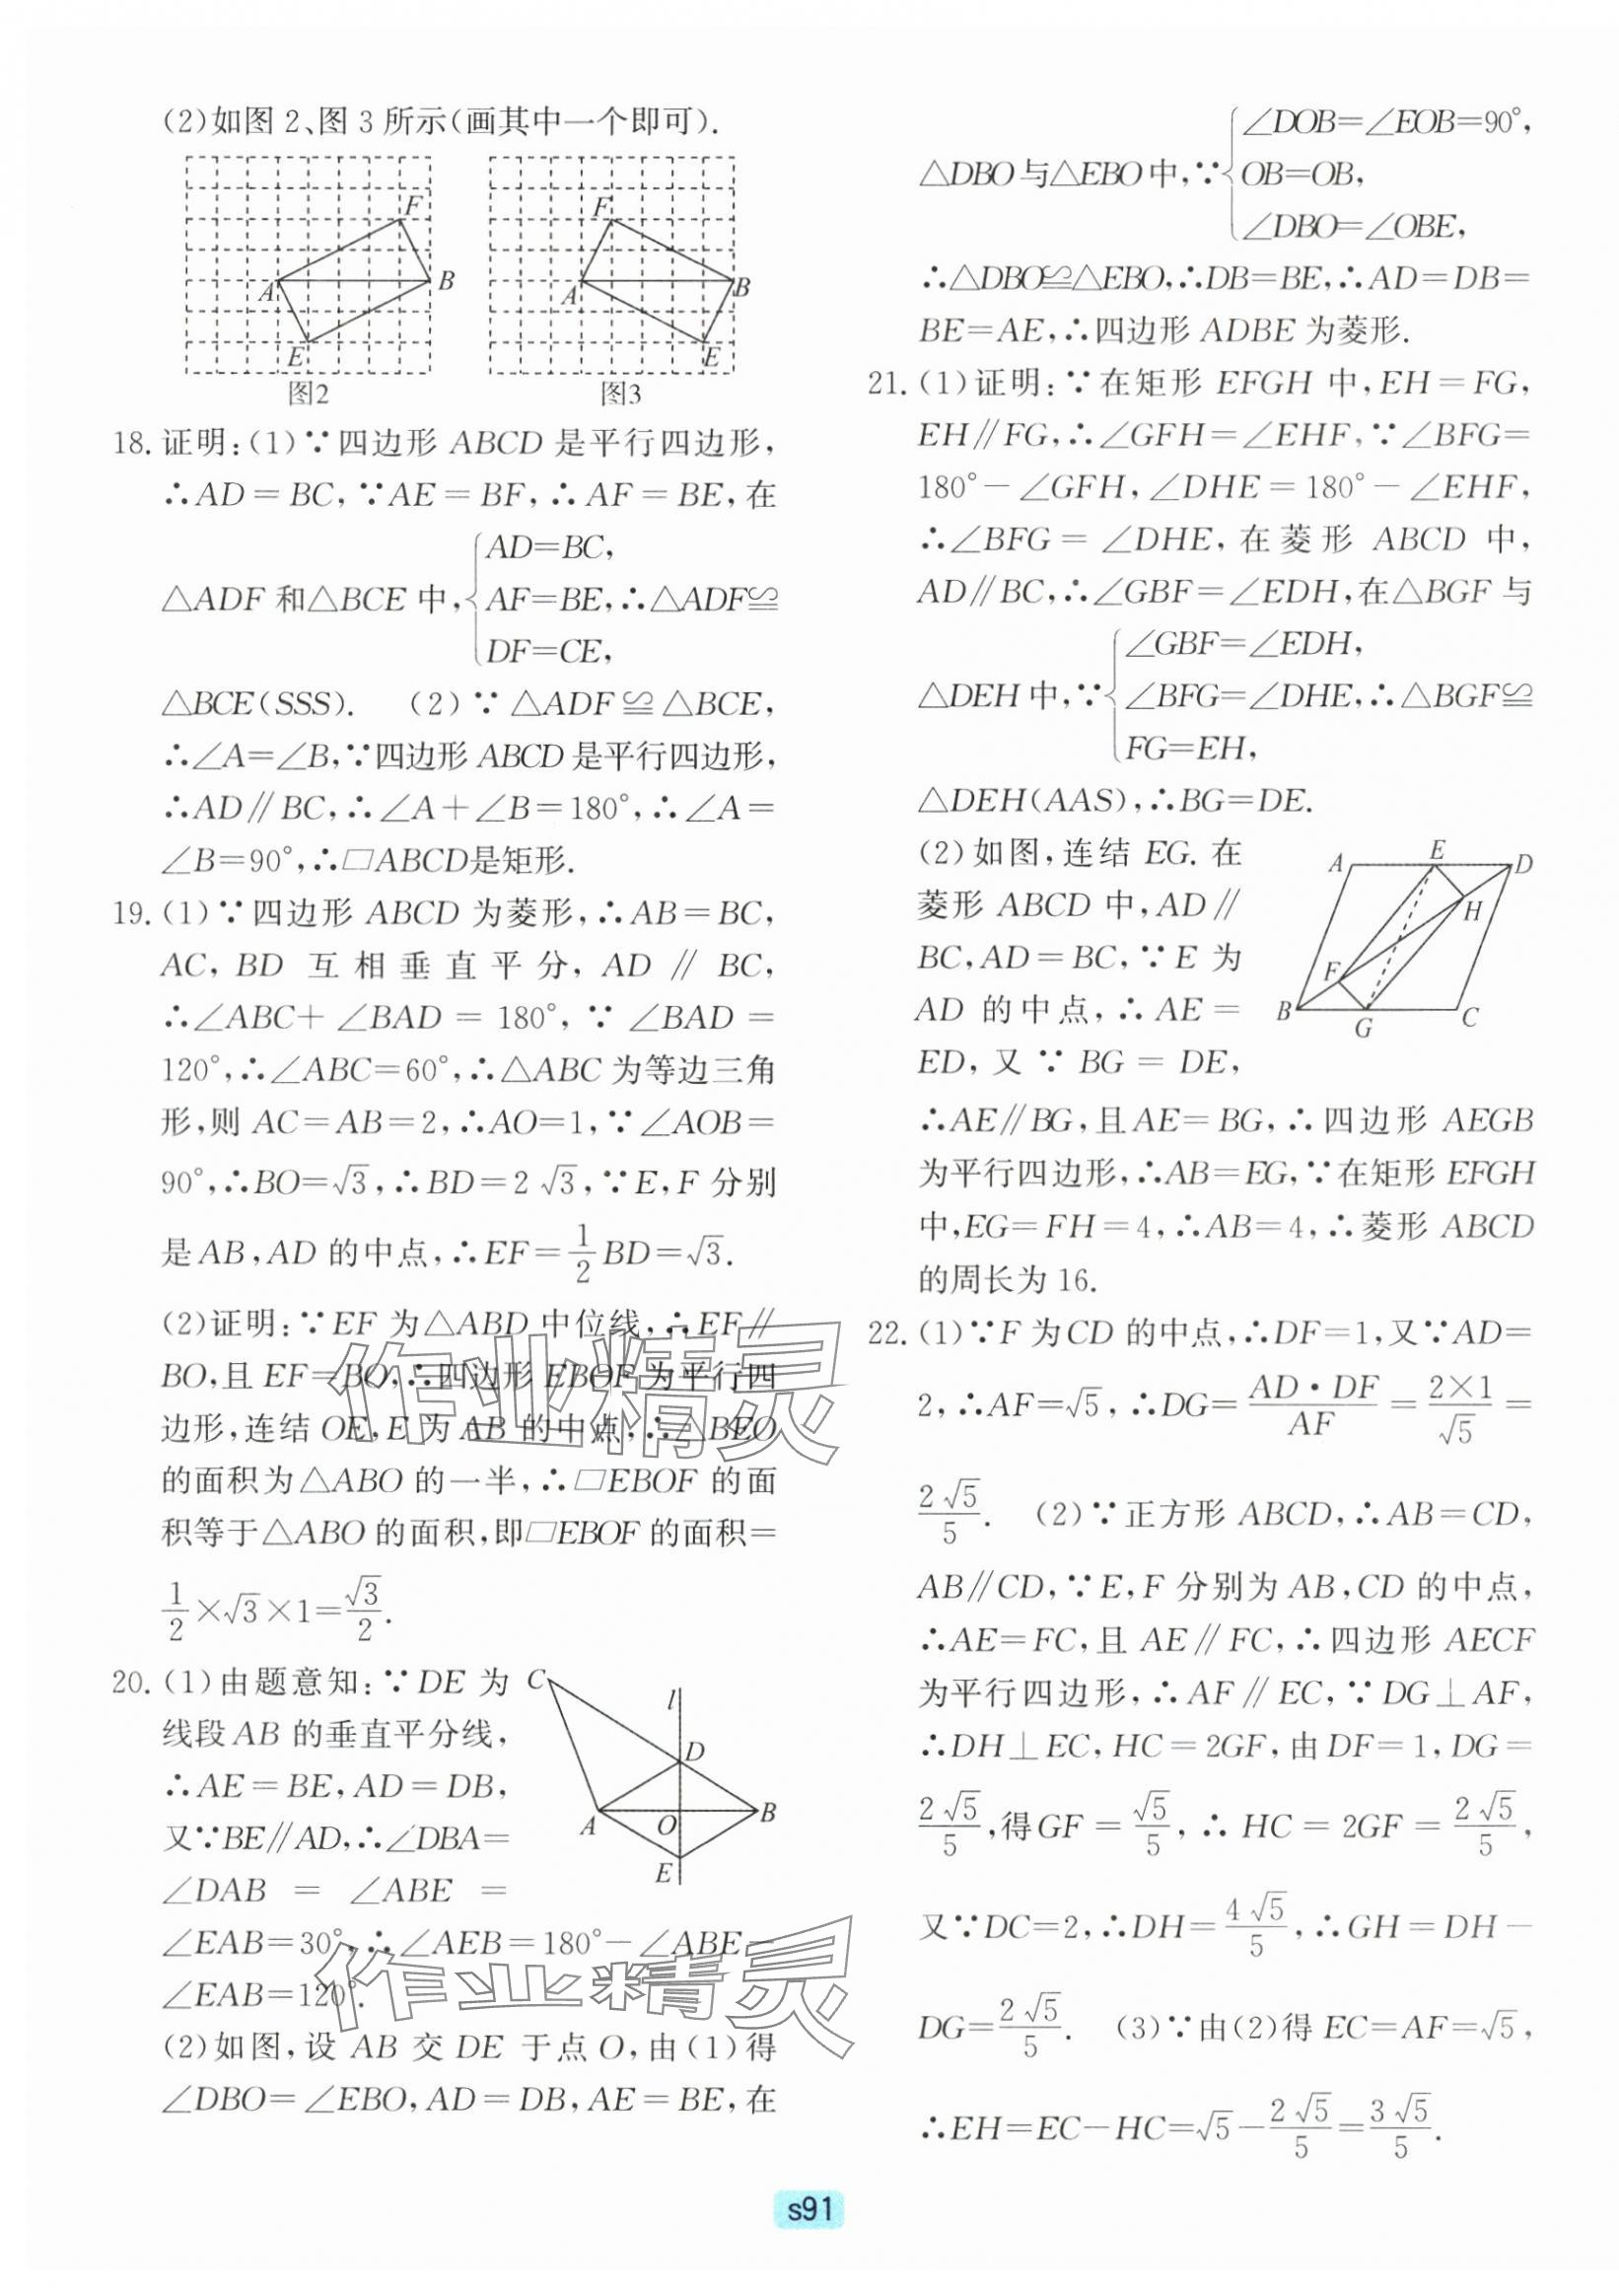 (2)如图2、图3所示(画其中一个即可).
F
A
B
E
图2
F
A
B
E
图3
18. 证明:(1)∵四边形 ABCD 是平行四边形,
∴AD=BC,∵AE=BF,∴AF=BE,在
△ADF 和△BCE 中,{AD=BC,
AF=BE,∴△ADF≌
DF=CE,
△BCE(SSS). (2)∵△ADF≌△BCE,
∴∠A=∠B,∵四边形 ABCD 是平行四边形,
∴AD∥BC,∴∠A+∠B=180°,∴∠A=
∠B=90°,∴□ABCD是矩形.
19. (1)∵四边形 ABCD 为菱形,∴AB=BC,
AC, BD 互相垂直平分, AD∥BC,
∴∠ABC+∠BAD=180°,∵∠BAD=
120°,∴∠ABC=60°,∴△ABC为等边三角
形,则 AC=AB=2,∴AO=1,∵∠AOB=
90°,∴BO=√3,∴BD=2√3,∵E,F 分别
是AB,AD 的中点,∴EF=1/2BD=√3.
(2)证明:∵EF 为△ABD 中位线,∴EF∥
BO,且 EF=BO,∴四边形 EBOF 为平行四
边形,连结 OE,E 为 AB 的中点,∴△BEO
的面积为△ABO 的一半,∴□EBOF 的面
积等于△ABO 的面积,即□EBOF 的面积=
1/2×√3×1=√3/2.
20. (1)由题意知:∵DE 为
线段AB 的垂直平分线,
∴AE=BE,AD=DB,
又∵BE∥AD,∴∠DBA=
∠DAB=∠ABE=
∠EAB=30°,∴∠AEB=180°-∠ABE-
∠EAB=120°.
C
l
D
A
O
B
E
(2)如图,设 AB 交 DE 于点O,由(1)得
∠DBO=∠EBO,AD=DB,AE=BE,在
△DBO与△EBO中,∵{∠DOB=∠EOB=90°,
OB=OB,
∠DBO=∠OBE,
∴△DBO≌△EBO,∴DB=BE,∴AD=DB=
BE=AE,∴四边形 ADBE 为菱形.
21. (1)证明:∵在矩形 EFGH 中,EH=FG,
EH∥FG,∴∠GFH=∠EHF,∵∠BFG=
180°-∠GFH,∠DHE=180°-∠EHF,
∴∠BFG=∠DHE,在菱形 ABCD 中,
AD∥BC,∴∠GBF=∠EDH,在△BGF 与
△DEH中,∵{∠GBF=∠EDH,
∠BFG=∠DHE,∴△BGF≌
FG=EH,
△DEH(AAS),∴BG=DE.
(2)如图,连结 EG. 在
菱形 ABCD 中,AD∥
BC,AD=BC,∵E 为
AD 的中点,∴AE=
ED,又∵BG=DE,
A
E
D
H
F
B
G
C
∴AE∥BG,且AE=BG,∴四边形 AEGB
为平行四边形,∴AB=EG,∵在矩形 EFGH
中,EG=FH=4,∴AB=4,∴菱形 ABCD
的周长为16.
22. (1)∵F 为CD 的中点,∴DF=1,又∵AD=
2,∴AF=√5,∴DG=AD·DF/AF=2×1/√5=
2√5/5. (2)∵正方形 ABCD,∴AB=CD,
AB∥CD,∵E,F 分别为 AB,CD 的中点,
∴AE=FC,且 AE∥FC,∴四边形 AECF
为平行四边形,∴AF∥EC,∵DG⊥AF,
∴DH⊥EC,HC=2GF,由DF=1,DG=
2√5/5,得GF=√5/5,∴HC=2GF=2√5/5,
又∵DC=2,∴DH=4√5/5,∴GH=DH-
DG=2√5/5. (3)∵由(2)得 EC=AF=√5,
∴EH=EC-HC=√5-2√5/5=3√5/5.
作业精灵
作业精灵
s91